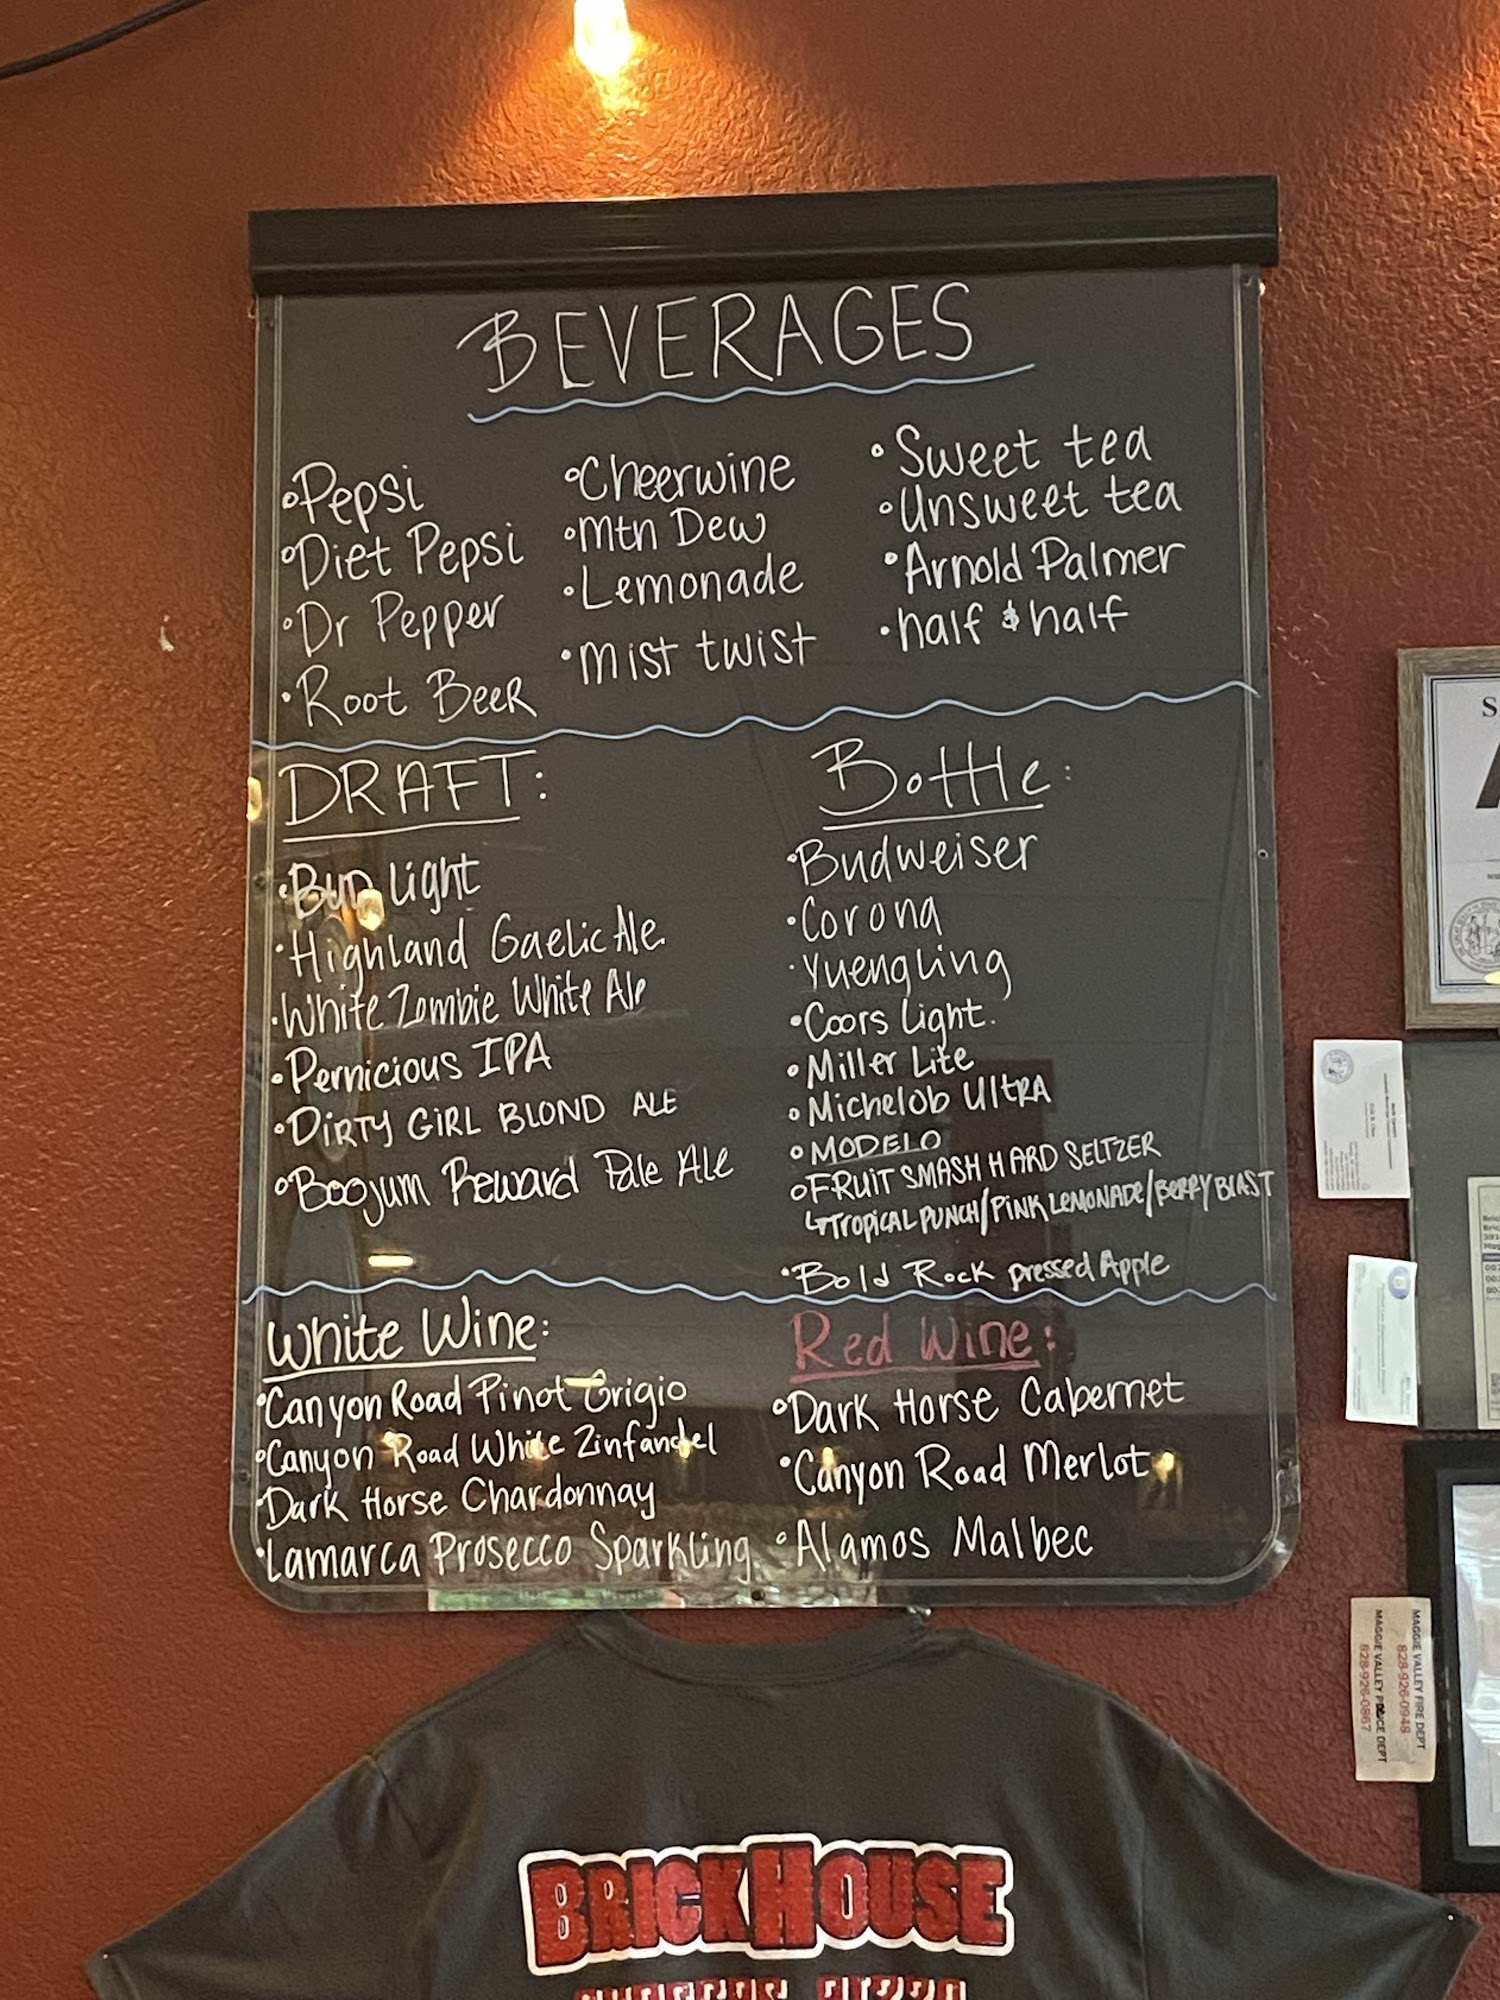 BEVERAGES
•Pepsi
•Diet Pepsi
•Dr Pepper
•Root Beer
•Cheerwine
•Mtn Dew
•Lemonade
•mist twist
•Sweet tea
•Unsweet tea
•Arnold Palmer
•half & half
DRAFT:
•Bud Light
•Highland Gaelic Ale
•White Zombie White Ale
•Pernicious IPA
•DIRTY GIRL BLOND ALE
•Boojum Reward Pale Ale
Bottle:
•Budweiser
•Corona
•Yuengling
•Coors Light.
•Miller Lite
•Michelob UltRA
•MODELO
•FRUIT SMASH HARD SELTZER
↳TROPICAL PUNCH/PINK LEMONADE/BERRY BLAST
•Bold Rock pressed Apple
White Wine:
•Canyon Road Pinot Grigio
•Canyon Road White Zinfandel
•Dark Horse Chardonnay
•Lamarca Prosecco Sparkling
Red Wine:
•Dark Horse Cabernet
•Canyon Road Merlot
•Alamos Malbec
MAGGIE VALLEY FIRE DEPT
828-926-0948
MAGGIE VALLEY POLICE DEPT
828-926-0867
BRICKHOUSE